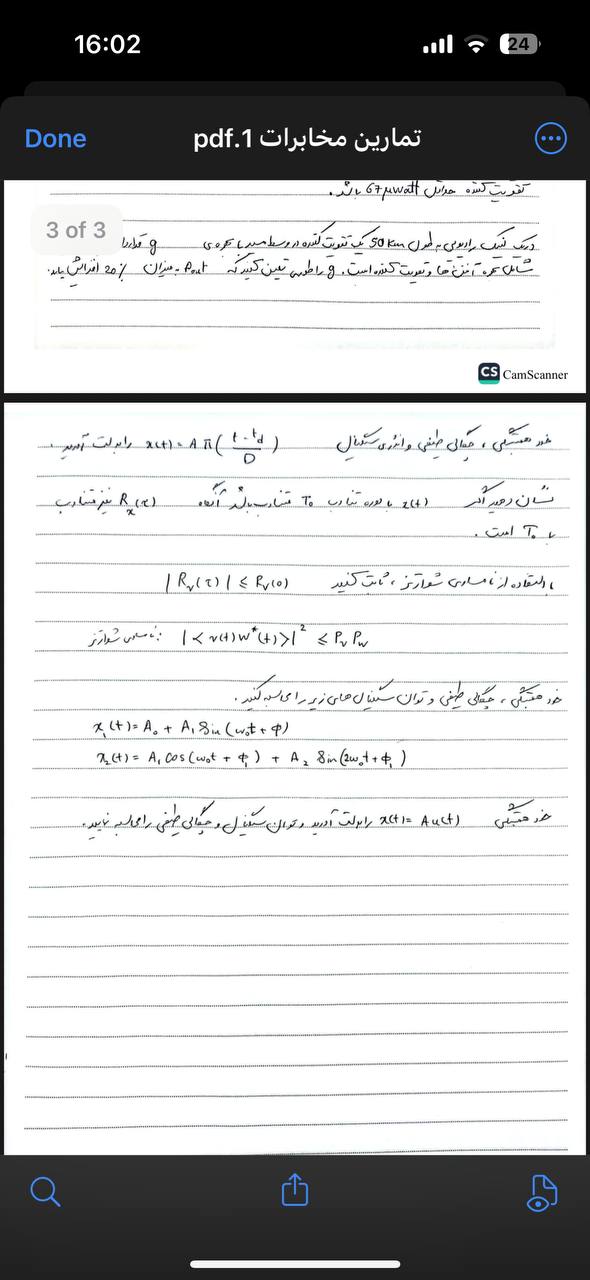 16:02
24
Done
تمارین مخابرات 1.pdf
تقویت کننده حداقل 67 μwatt باشد.
3 of 3
در یک لینک رادیویی به طول 50 km یک تقویت کننده در وسط مسیر با بهره‌ی g قرار دا
شامل بهره آنتن ها و تقویت کننده است. g را طوری تعیین کنید که Pout به میزان 20% افزایش یابد.
CS CamScanner
خود همبستگی، چگالی طیفی و انرژی سیگنال x(t) = A Π((t - t_d)/D) را بدست آورید.
نشان دهید اگر x(t) با دوره تناوب T₀ متناوب باشد آنگاه R_x(τ) نیز متناوب
با T₀ است.
با استفاده از نامساوی شوارتز، ثابت کنید |R_v(τ)| ≤ R_v(0)
نامساوی شوارتز: |<v(t)w*(t)>|² ≤ P_v P_w
خود همبستگی، چگالی طیفی و توان سیگنال های زیر را محاسبه کنید.
x₁(t) = A₀ + A₁ Sin(ω₀t + φ)
x₂(t) = A₁ cos(ω₀t + φ₁) + A₂ Sin(2ω₀t + φ₁)
خود همبستگی x(t) = Au(t) را بدست آورید و توان سیگنال و چگالی طیفی را محاسبه نمایید.